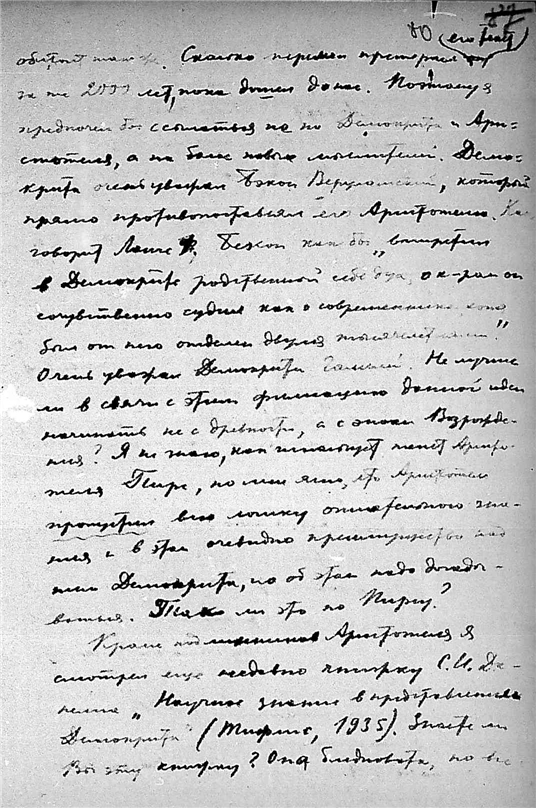 80
(его текст)
обстоит также. Сколько перемен претерпел он
за те 2000 лет, пока дошел до нас. Поэтому я
предпочел бы ссылаться не на Демокрита и Ари-
стотеля, а на более новых мыслителей. Демо-
крита очень уважал Бэкон Веруламский, который
прямо противопоставлял его Аристотелю. Как
говорит Ланге, Бэкон как бы „встретил
в Демокрите родственный себе дух, о к-ром он
сочувственно судил как о современнике, хотя
был от него отделен двумя тысячелетиями".
Очень уважал Демокрита Галилей. Не лучше
ли в связи с этим филиацию данной идеи
начинать не с древности, а с эпохи Возрожде-
ния? Я не знаю, как толкует текст Аристо-
теля Пирс, но мне ясно, что Аристотель
пропустил всю логику описательного зна-
ния и в этом очевидно преимущество над
ним Демокрита, но об этом надо догады-
ваться. Так ли это по Пирсу?
Кроме подлинников Аристотеля я
смотрел еще недавно книжку С.И. Да-
нелиа „Научное знание в представлении
Демокрита" (Тифлис, 1935). Знаете ли
Вы эту книжку? Она бледновата, но все